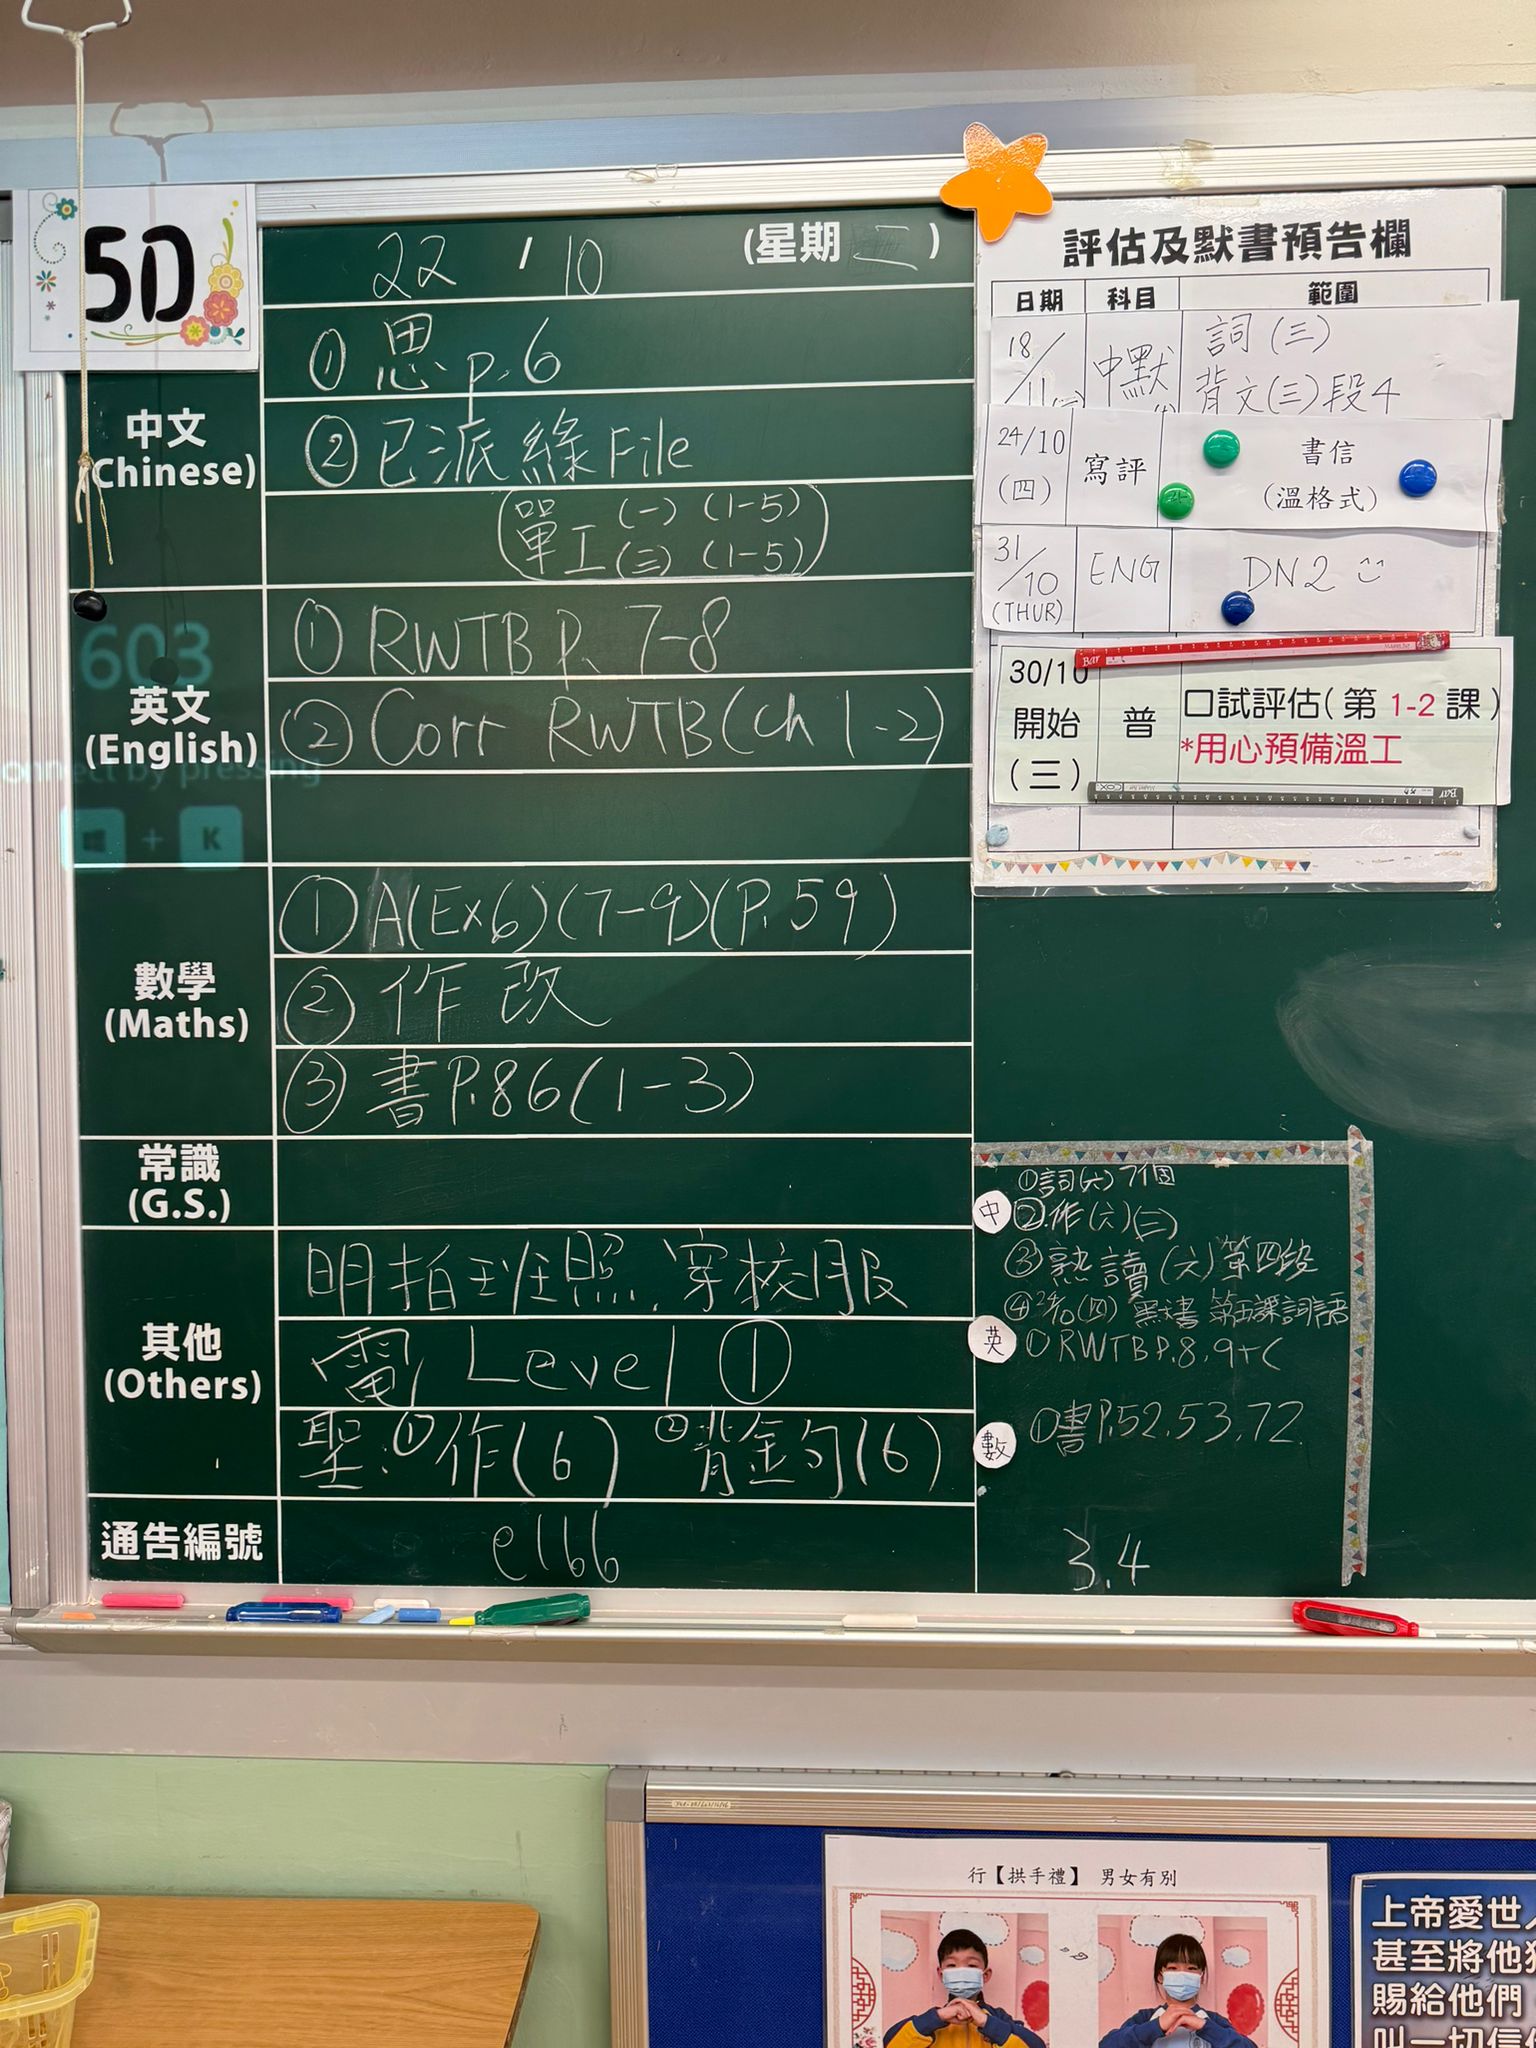 5D
22 / 10 (星期 二)
中文
(Chinese)
① 思 p.6
② 已派綠File
單工 (一) (1-5)
(三) (1-5)
英文
(English)
① RWTB P. 7-8
② Corr RWTB (Ch 1-2)
603
connect by pressing
+ K
數學
(Maths)
① A(Ex6)(7-9)(P.59)
② 作改
③ 書P.86(1-3)
常識
(G.S.)
其他
(Others)
明拍班照.穿校服
電 Level ①
聖:①作(6) ②背金句(6)
通告編號
e166
評估及默書預告欄
日期 科目 範圍
18/11 中默 詞(三)
背文(三)段4
24/10
(四) 寫評 書信
(溫格式)
31/10
(THUR) ENG DN2
30/10
開始
(三) 普 口試評估(第 1-2 課)
*用心預備溫工
中
①詞(六)7個
②作(六)(三)
③熟讀(六)第四段
④24/10(四)默書 第五課詞語
英 ①RWTB P.8,9+C
數 ①書P.52,53,72
3.4
行【拱手禮】 男女有別
上帝愛世人
甚至將他
賜給他們
叫一切信